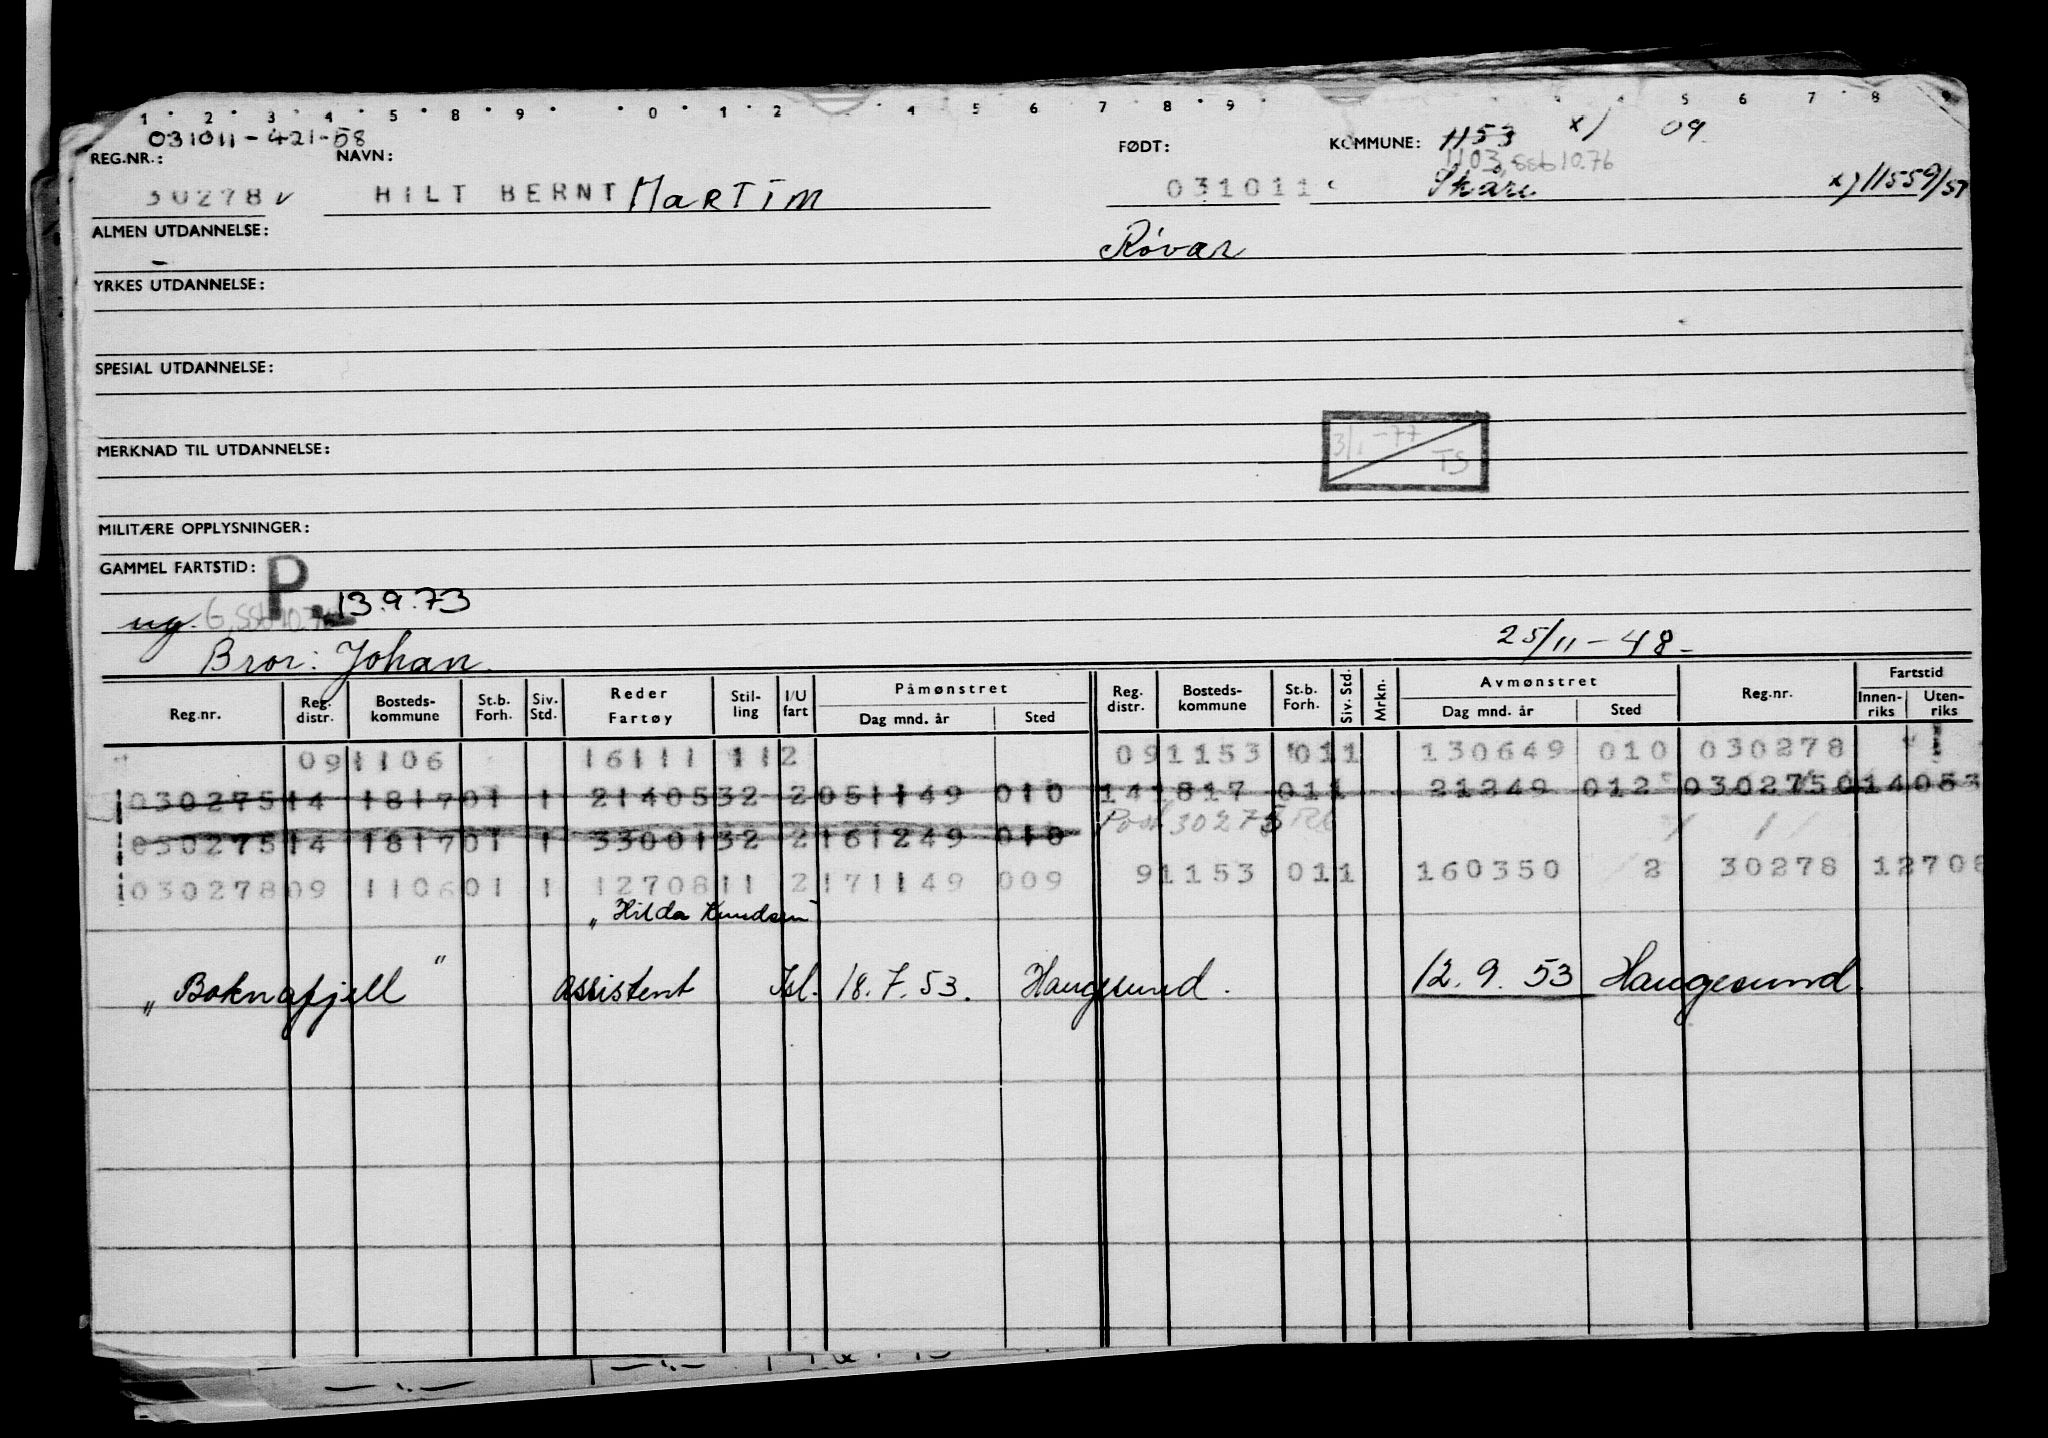 1 · 2 · 3 · 4 · 5 · 8 · 9 · · 0 · 1 · 2 · 4 5 6 7 8 · 9 · 5 6 7 · 8
031011-421-58 1153 x) 09
REG.NR.: NAVN: FØDT: KOMMUNE: 1103, ssb 10.76
30278 v HILT BERNT MARTIM 031011 Skåre x) 11559/57
ALMEN UTDANNELSE: Røvar
YRKES UTDANNELSE:
SPESIAL UTDANNELSE:
MERKNAD TIL UTDANNELSE: 3/1-77 TS
MILITÆRE OPPLYSNINGER:
GAMMEL FARTSTID: P
ug. 13.9.73
Bror: Johan. 25/11-48-
Reg.nr. Reg. distr. Bosteds-kommune St.b. Forh. Siv. Std. Reder Fartøy Stil-ling I/U fart Påmønstret Dag mnd. år Sted Reg. distr. Bosteds-kommune St.b. Forh. Siv. Std. Mrkn. Avmønstret Dag mnd. år Sted Reg.nr. Fartstid Innen-riks Uten-riks
09 1106 16111 11 2 09 1153 01 1 130649 010 030278
030275 14 1817 01 1 21405 32 2 051149 010 14 1817 01 1 21249 012 030275 014053
030275 14 1817 01 1 33001 32 2 161249 010 30275
030278 09 1106 01 1 12708 11 2 171149 009 9 1153 01 1 160350 2 30278 12708
„Hilda Knudsen"
„Boknafjell" assistent Isl. 18.7.53. Haugesund. 12.9.53 Haugesund.